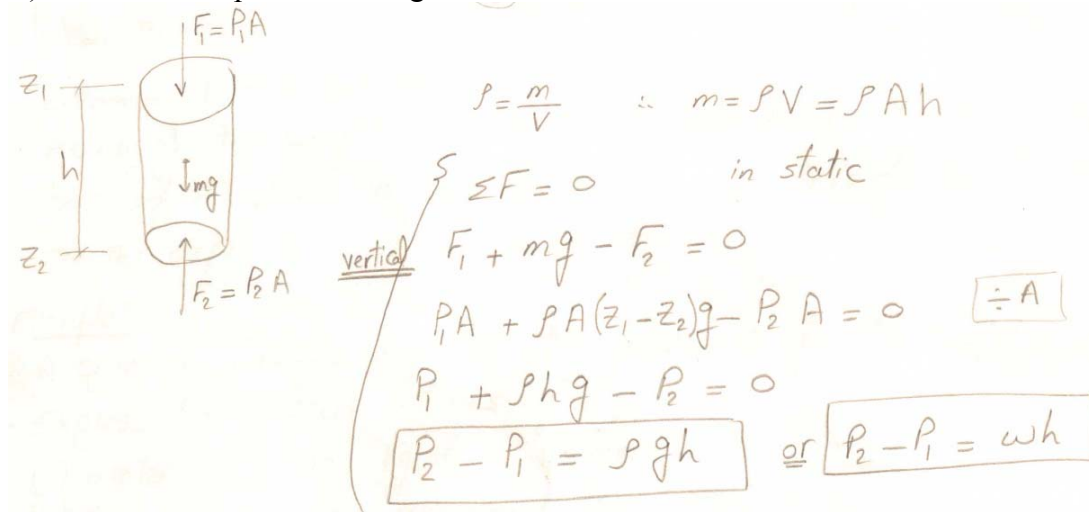 F₁ = P₁A
Z₁
h
↓mg
Z₂
F₂ = P₂ A
ρ = m/V ∴ m = ρV = ρAh
ΣF = 0 in static
vertical F₁ + mg - F₂ = 0
P₁A + ρA(Z₁-Z₂)g - P₂ A = 0 ÷ A
P₁ + ρhg - P₂ = 0
P₂ - P₁ = ρgh or P₂ - P₁ = ωh